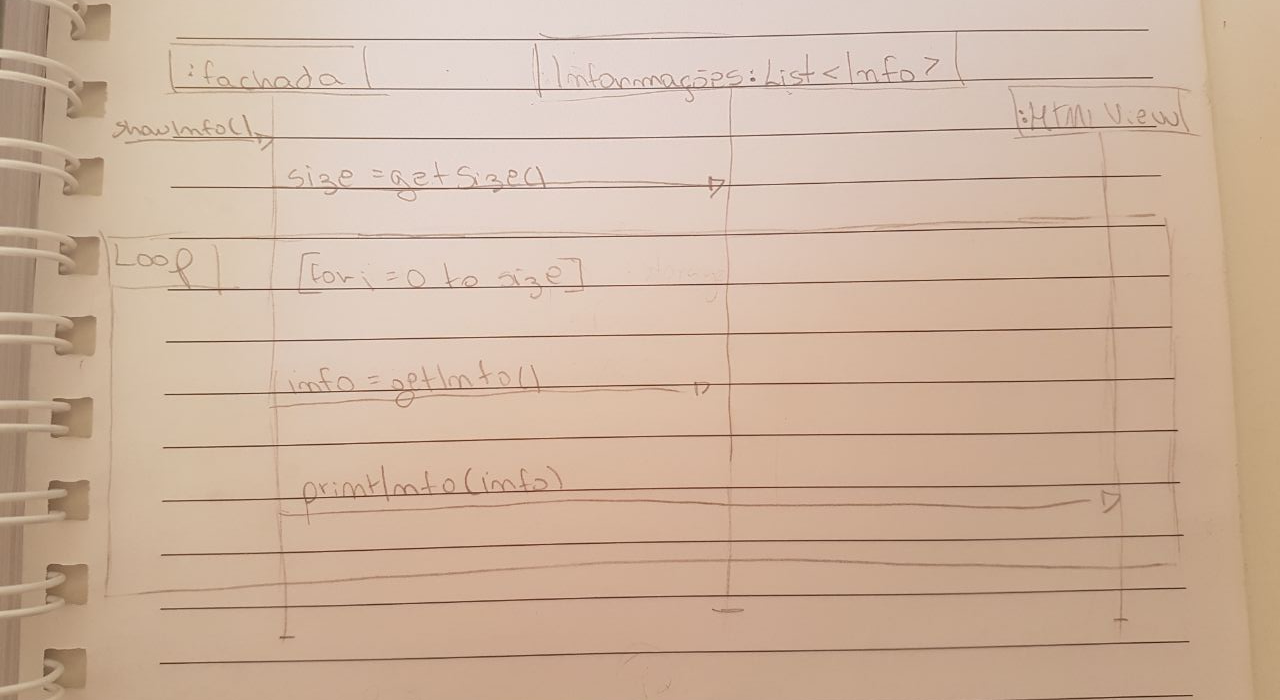 :fachada
Informações:List<Info>
:Html View
showInfo()
size = getSize()
Loop
[for i = 0 to size]
info = getInfo()
printInfo(info)